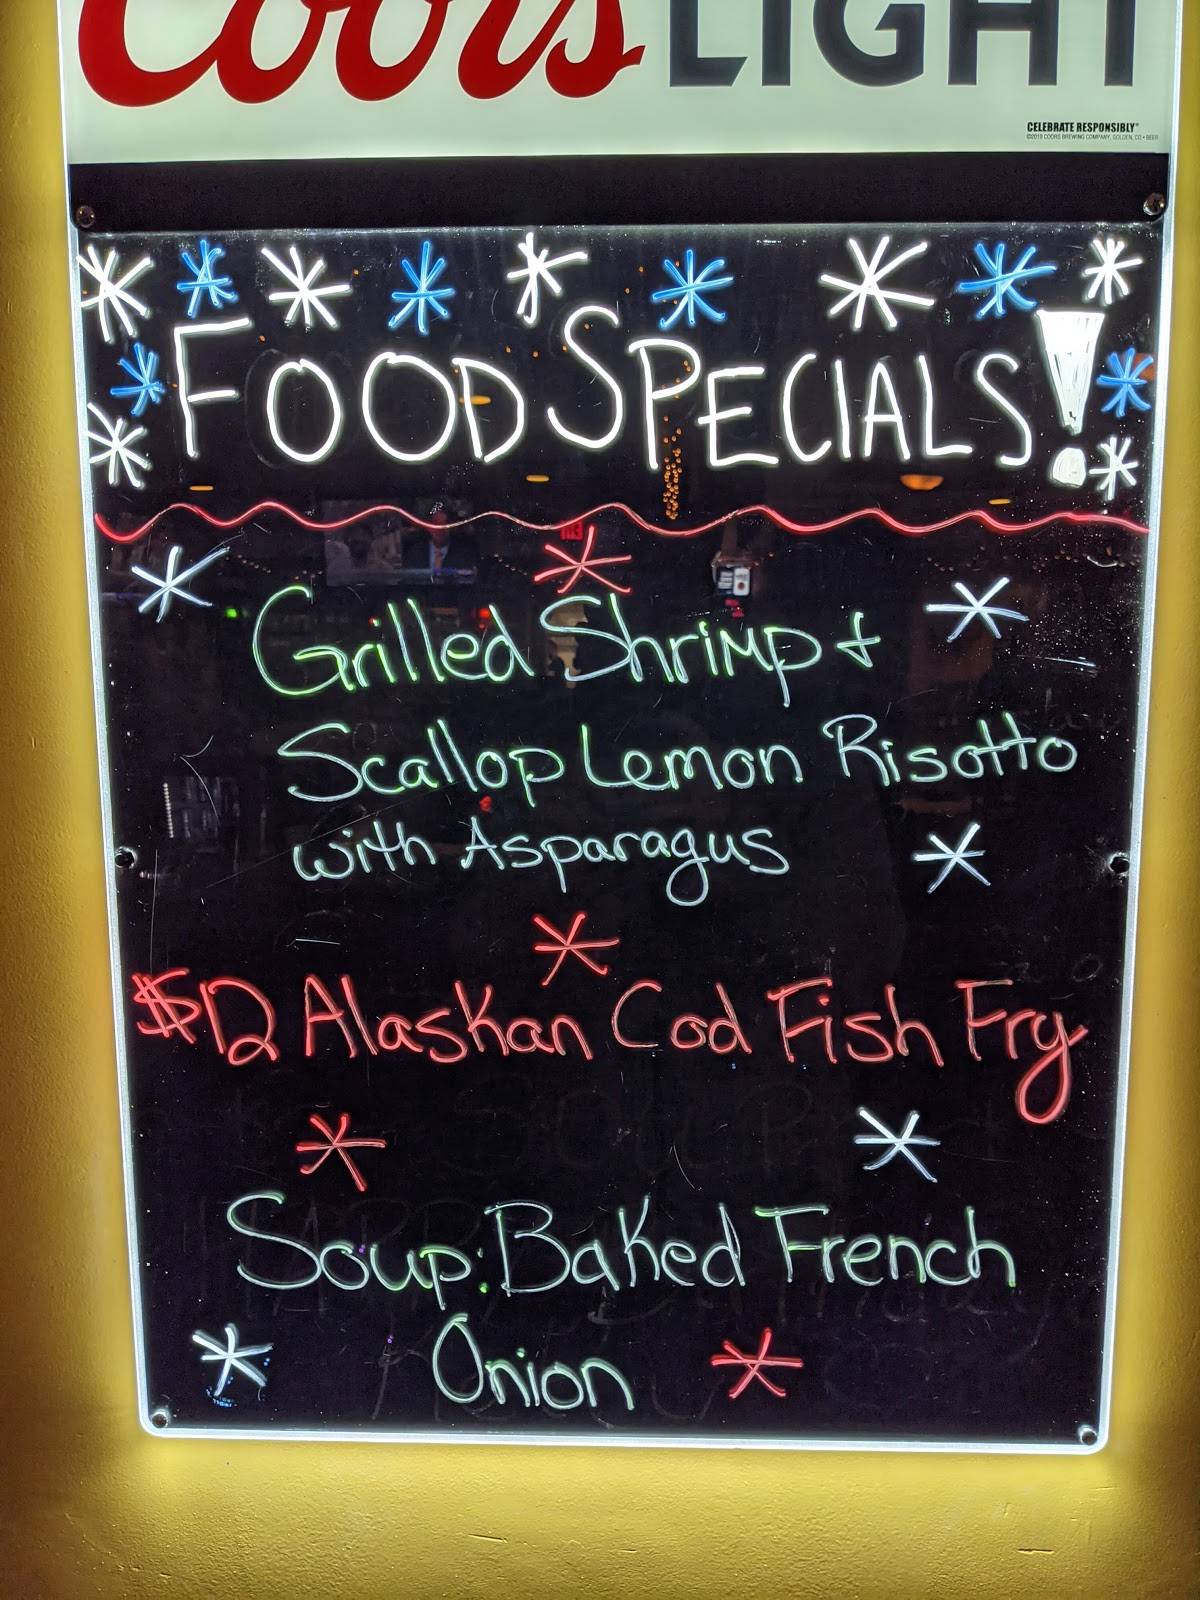 Coors LIGHT
CELEBRATE RESPONSIBLY®
©2019 COORS BREWING COMPANY, GOLDEN, CO • BEER
FOOD SPECIALS!
Grilled Shrimp +
Scallop Lemon Risotto
with Asparagus
$12 Alaskan Cod Fish Fry
Soup: Baked French
Onion